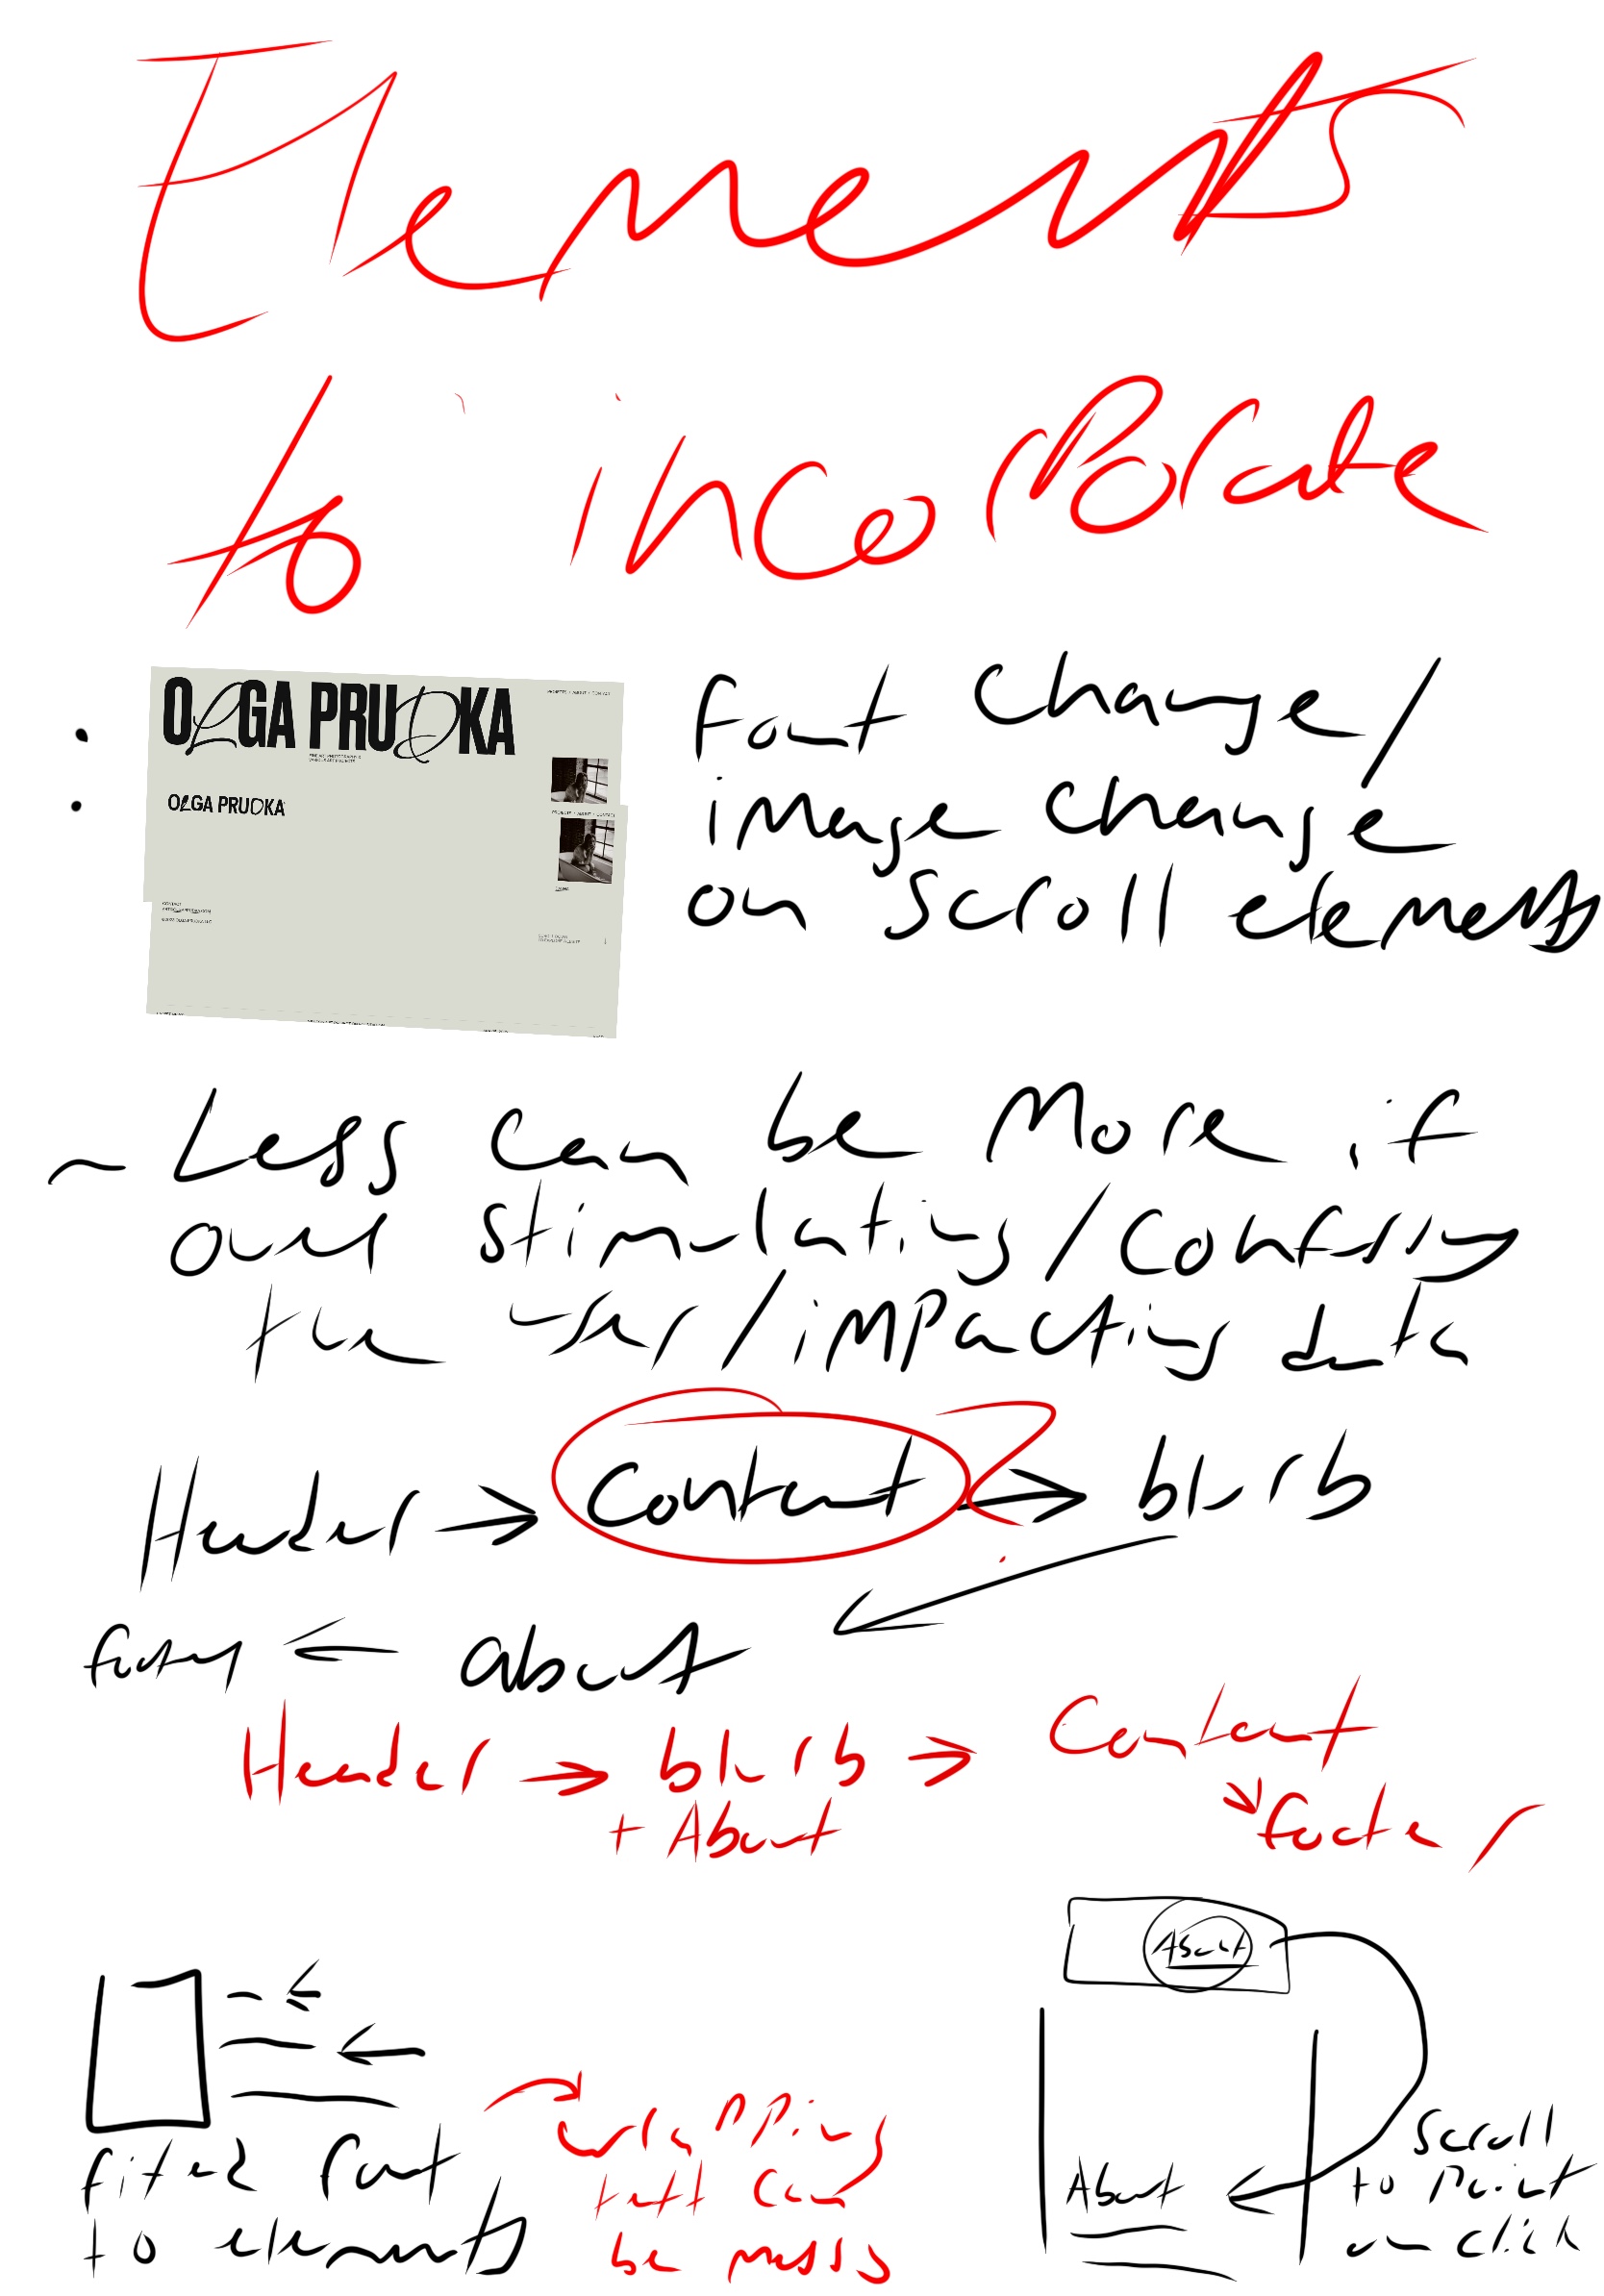 Elements
to incorporate
OLGA PRUDKA
OLGA PRUDKA
font change/
image change
on scroll elements
~ Less can be More if
over stimulating/confusing
the user/impacting data
Header → Content → blurb
footer ← about
Header → blurb → Content
+ About
footer
About
fited font
to elements
wrapping
text can
be messy
About
scroll
to Point
on click